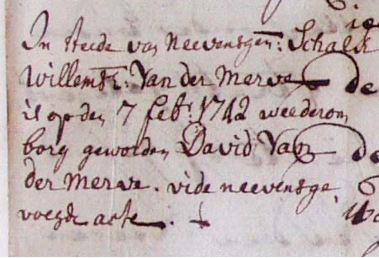 In steede van neevensgen: Schalk
Willemsz: Van der Merwe
is op den 7 feb: 1742 weederom
borg geworden David Van
der Merwe. vide neevensge
voegde acte.